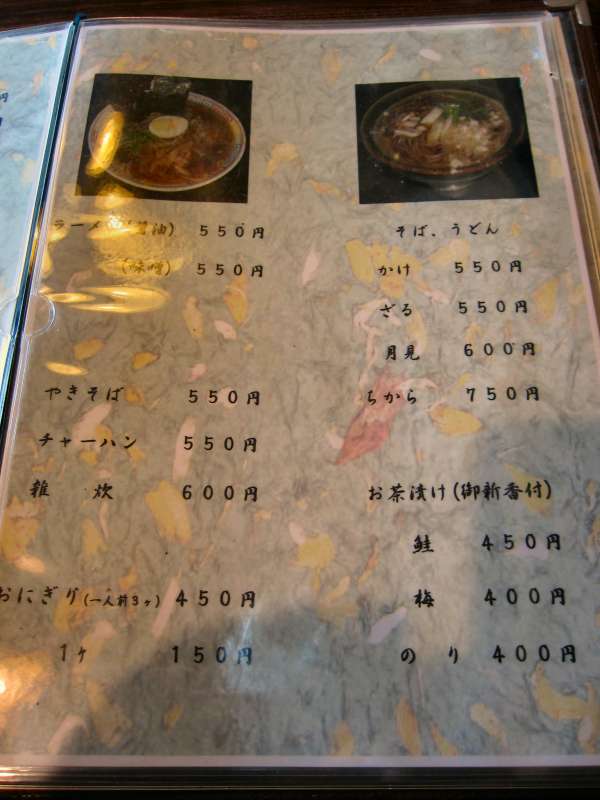 円
ラーメン(醤油) 550円
(味噌) 550円
やきそば 550円
チャーハン 550円
雑炊 600円
おにぎり(一人前3ヶ) 450円
1ケ 150円
そば、うどん
かけ 550円
ざる 550円
月見 600円
ちから 750円
お茶漬け(御新香付)
鮭 450円
梅 400円
のり 400円